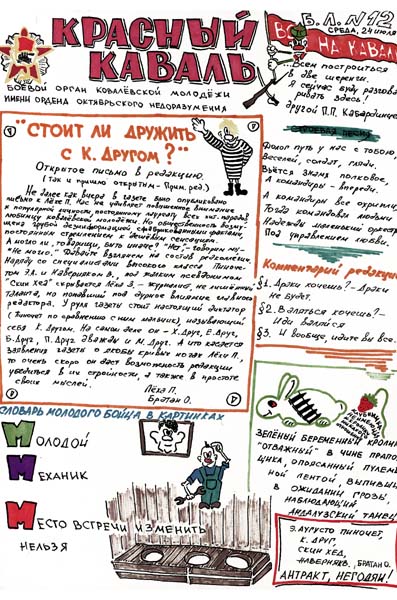 КРАСНЫЙ
КАВАЛЬ
БОЕВОЙ ОРГАН КОВАЛЁВСКОЙ МОЛОДЁЖИ
ИМЕНИ ОРДЕНА ОКТЯБРЬСКОГО НЕДОРАЗУМЕНИЯ
Б.Л. №12
СРЕДА, 24 ИЮЛЯ
НА КАВАЛЬ
"СТОИТ ЛИ ДРУЖИТЬ
С К. ДРУГОМ?"
Открытое письмо в редакцию.
(Так и пришло открытым - Прим. ред.)
Не далее как вчера в газете было опубликовано
письмо к Лёхе П. Нас
к популярной личности,
любимцу ковалёвской молодёжи. Но общественность
А могло ли, товарищи, быть иначе? "Нет", - говорим мы -
"Не могло." Давайте взглянем на состав редколлегии.
Наряду со специалистами высокого класса Пиноче-
том Э.А. и Наверняком В., под жалким псевдонимом
"Скин Хед" скрывается Лёха З. - журналист, не лишённый
таланта, но попавший под дурное влияние главного
редактора. У руля газеты стоит настоящий диктатор
(Пиночет по сравнению с ним мальчик), называющий
себя К. Другом. На самом деле он - Х. Друг, Е. Друг,
Б. Друг, П. Друг дважды и М. Друг. А что касается
заявления газеты о якобы кривых ногах Лёхи П.,
то очень скоро он даст возможность редакции
убедиться в их стройности, а также в простоте
своих мыслей.
Лёха П.
Братан О.
...Всем построиться
в две шеренги.
Я сейчас буду разгова-
ривать здесь!
другой П.П. Кабардинцев
СТРОЕВАЯ ПЕСНЯ
Поют путь у нас с тобою,
Веселей, солдат, гляди.
Вьётся знамя полковое,
А командиры - впереди.
А командиры все охрипли,
Тогда командовал
Надежды маленький оркестр
Под управлением любви.
Комментарий редакции
§1. Драки хочешь? - Драки
Не будет.
§2. Валяться хочешь? -
Иди валяйся
§3. И вообще, идите вы все.
СЛОВАРЬ МОЛОДОГО БОЙЦА В КАРТИНКАХ
МОЛОДОЙ
МЕХАНИК
МЕСТО ВСТРЕЧИ ИЗМЕНИТЬ
НЕЛЬЗЯ
ЗЕЛЁНЫЙ БЕРЕМЕННЫЙ КРОЛИК
"ОТВАЖНЫЙ" В ЧИНЕ ПРАПОР-
ЩИКА, ОПОЯСАННЫЙ ПУЛЕМЁТ-
НОЙ ЛЕНТОЙ, ВЫПИВШИЙ
В ОЖИДАНИИ ГРОЗЫ,
НАБЛЮДАЮЩИЙ
АНДАЛУЗСКИЙ ТАНЕЦ
Э. АУГУСТО ПИНОЧЕТ,
К. ДРУГ,
СКИН ХЕД,
НАВЕРНЯКВ., БРАТАН О.
АНТРАКТ, НЕГОДЯИ!